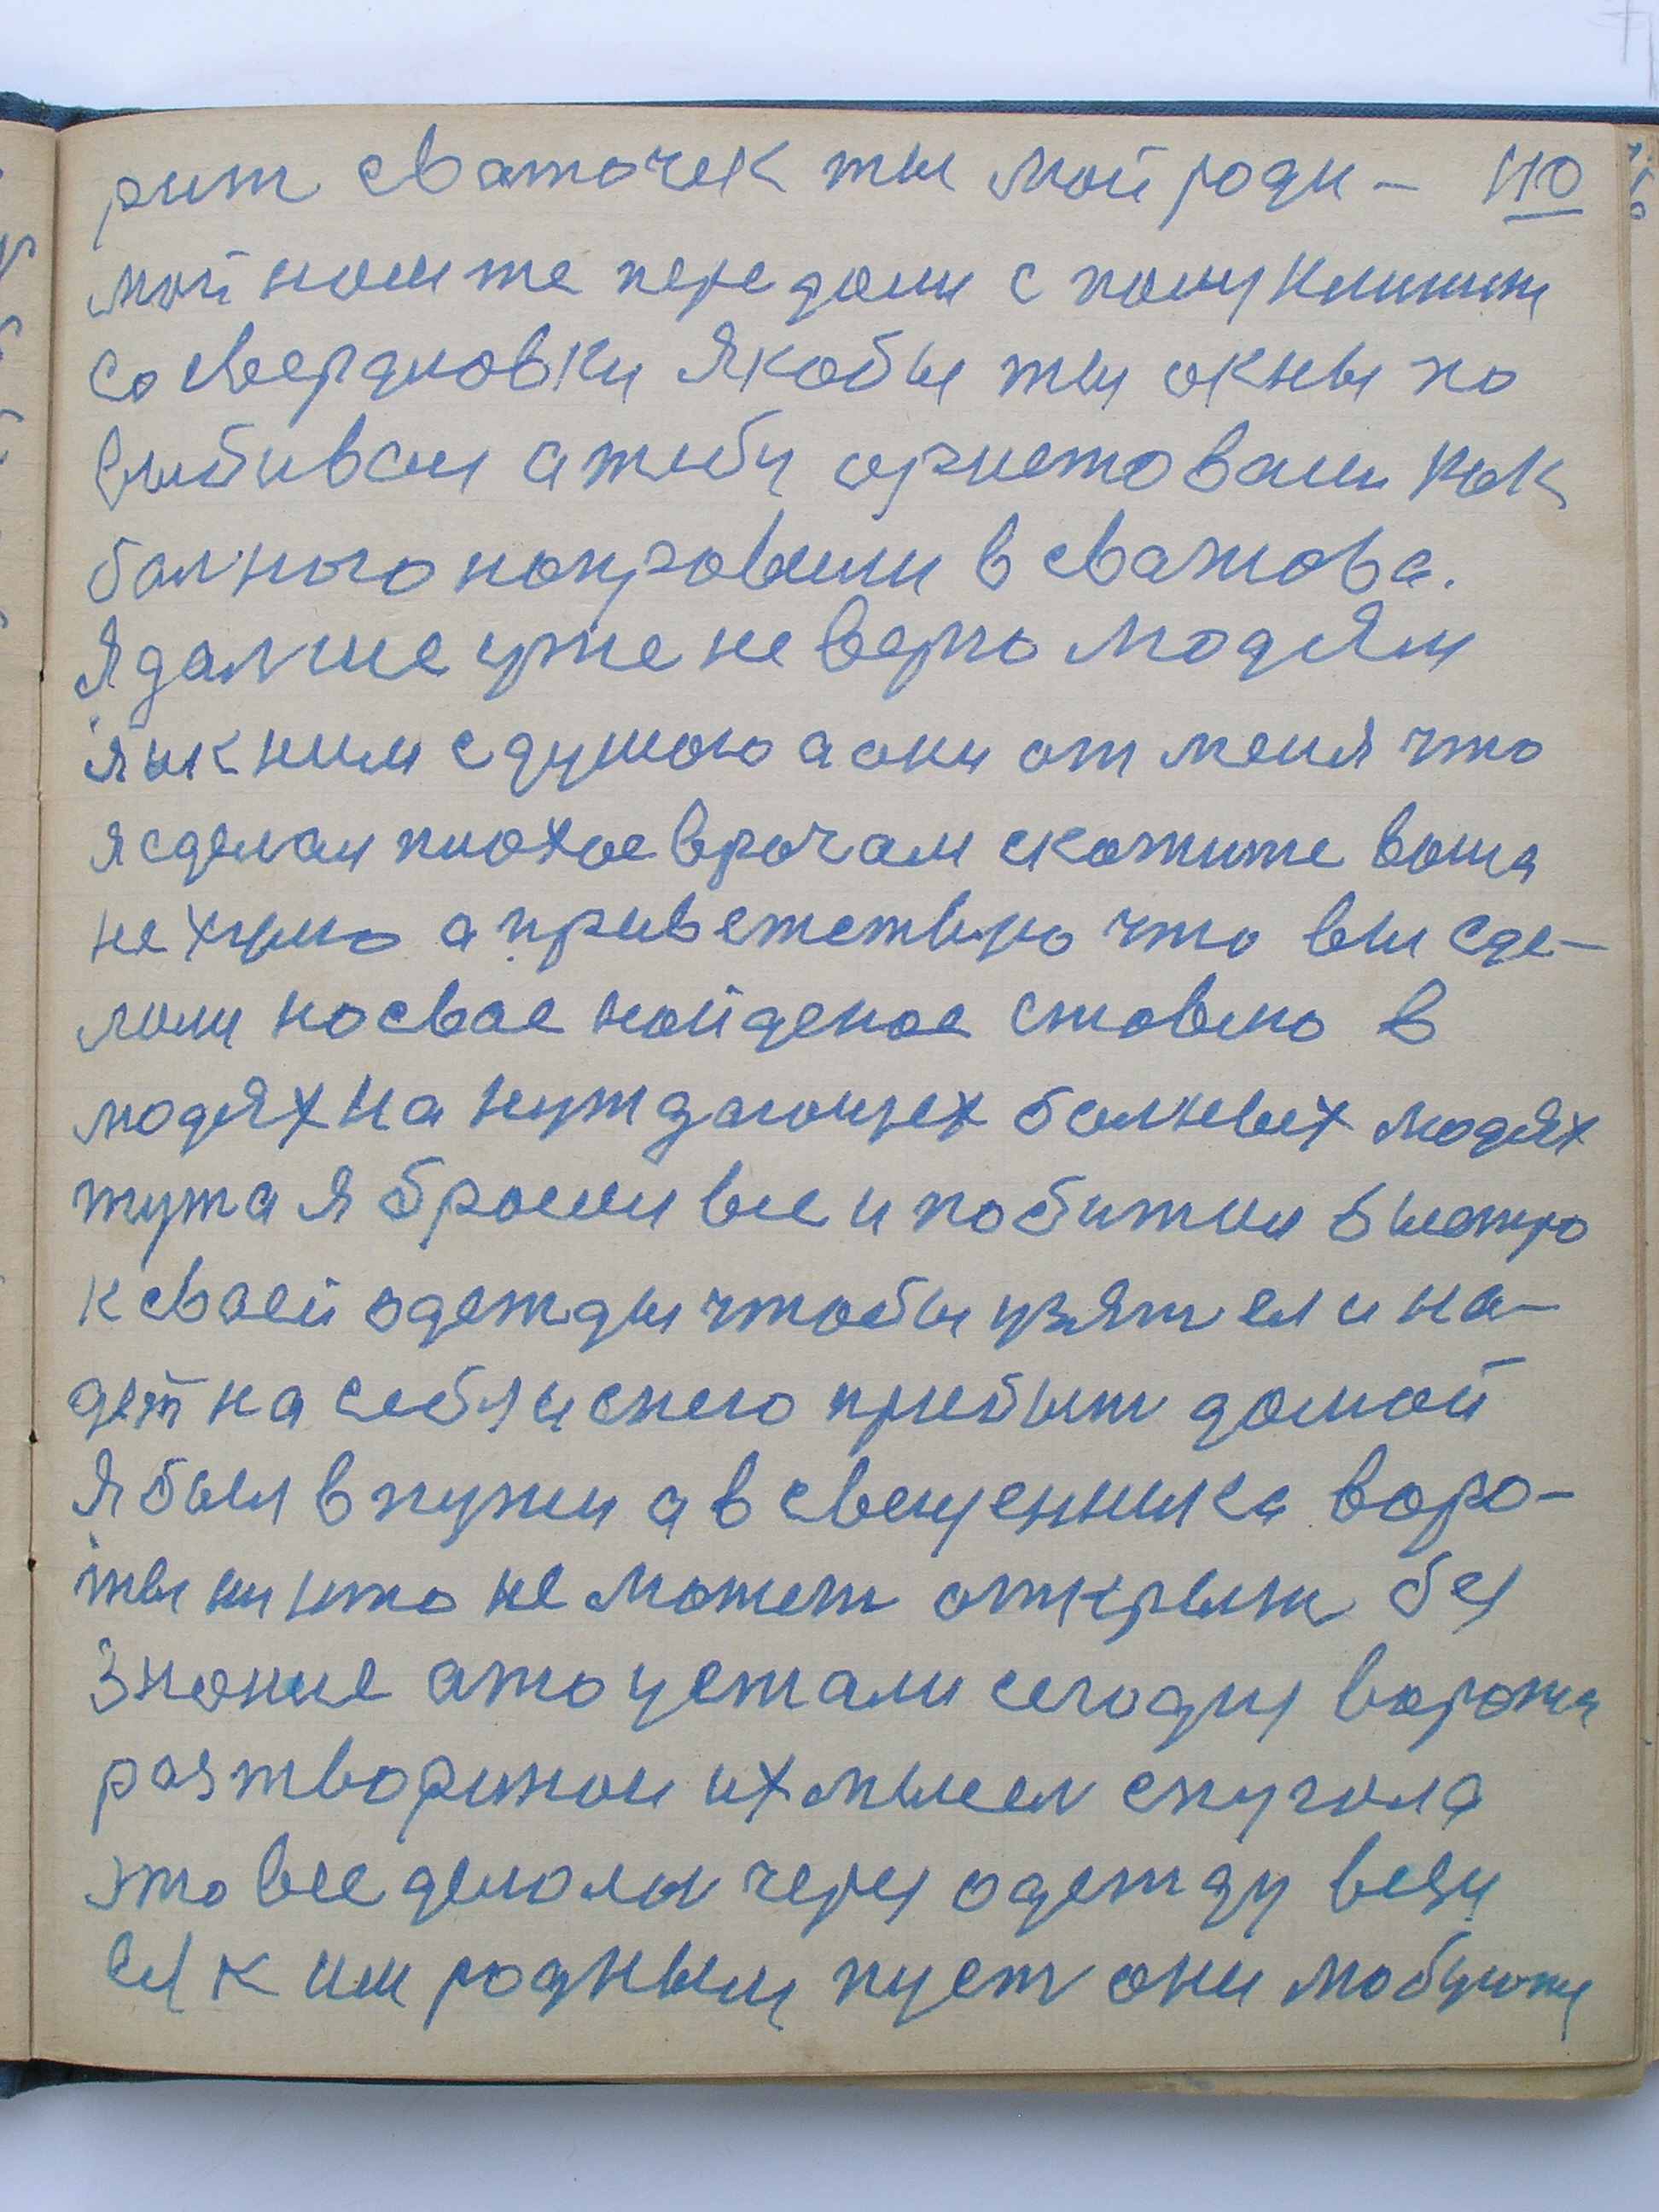 рит сваточек ты мой роди- 110
мой нам же передали с полуклиники
со свердловки якобы ты окны по
выбивал а тибя орнетовали как
балного направили в сватова.
Я далше уже не верю людям
я и к ним с душою а они от меня что
я сделал плохое врачам скажите ваша
не хулю а приветствую что вы сде-
лали но свае найденое ставлю в
людях на нуждающих балных людях
тута я бросил все и побижал быстро
к сваей одежды чтобы узят ея и на-
дет на себя и снею прибыт домой
Я был в пути а в священника воро-
ты никто не может открыт без
знание ато устали сегодня ворота
разтворитом их мысел спугала
это все делалы через одежду везу
ея к им родным пуст они любуюця